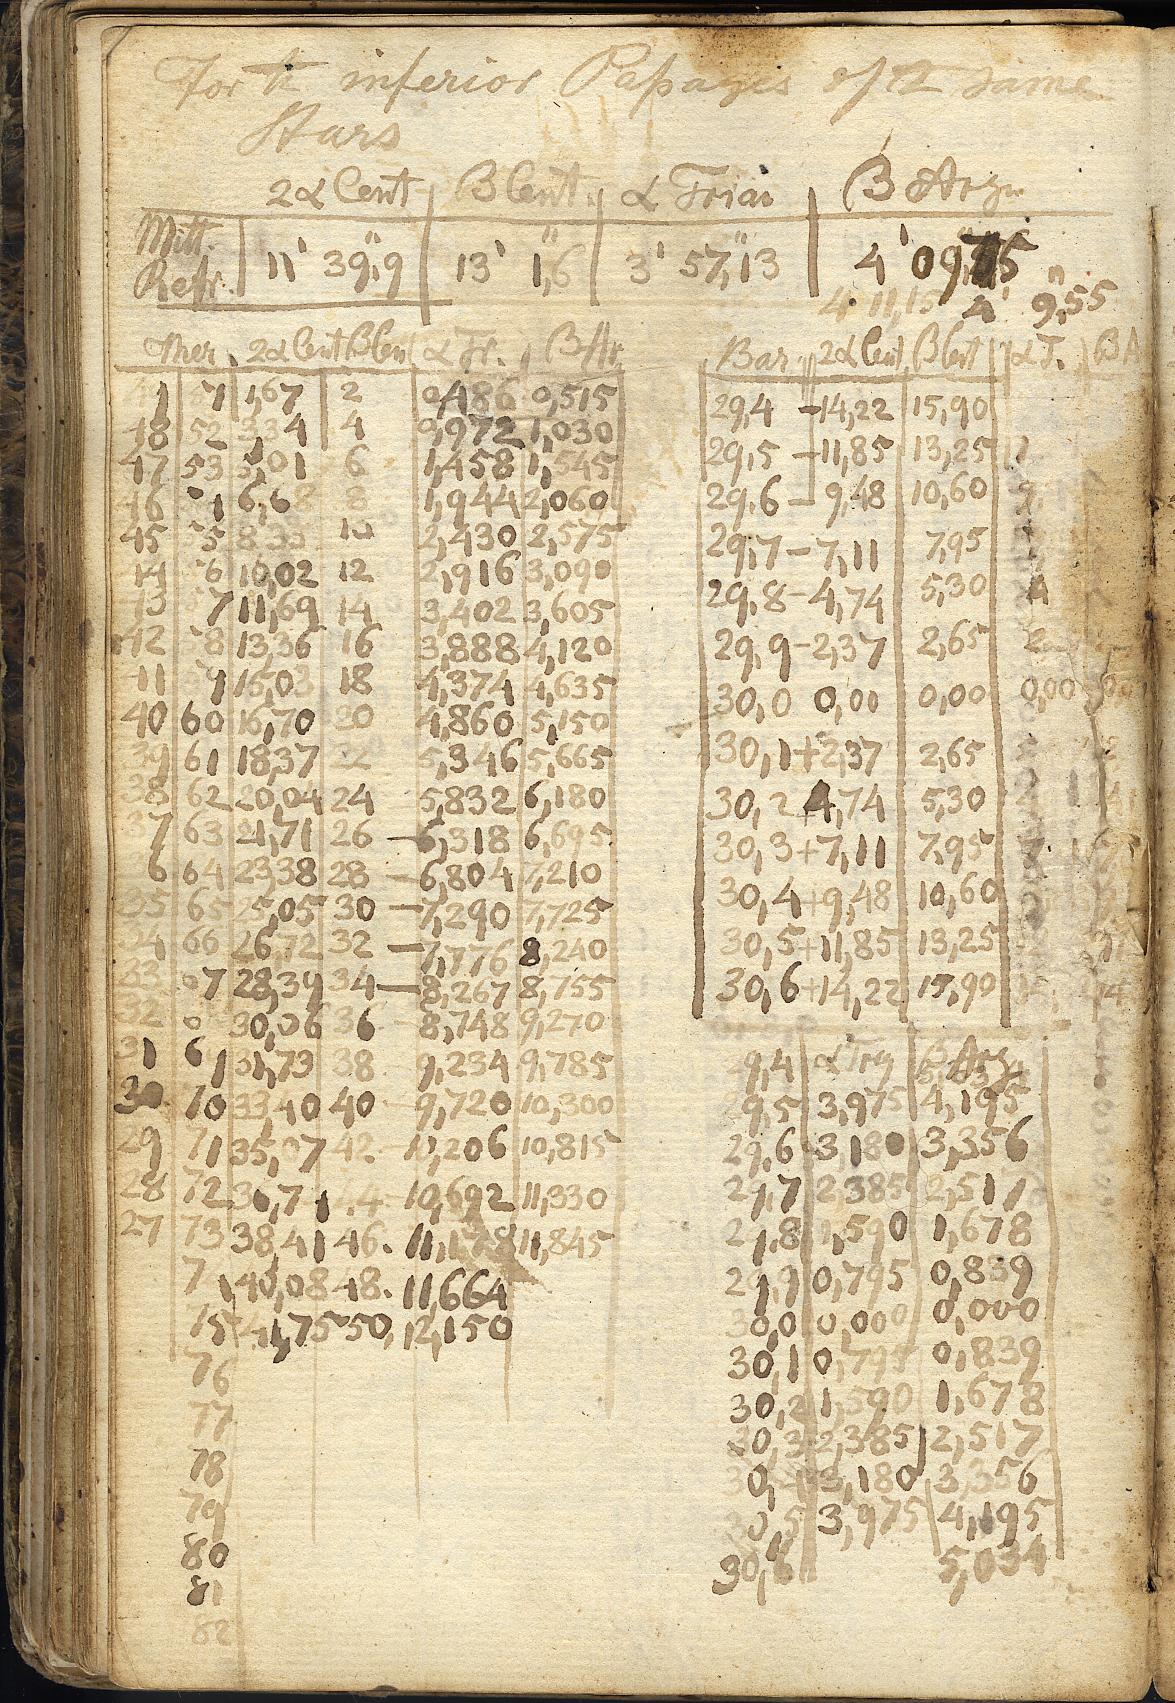 For te inferior Passages of te same
Stars
2α Cent β Cent. α Trian β Argu
Mitt. Refr. 11' 39",9 13' 1",6 3' 57",13 4' 09
4 11,15 4' 9",55
Ther. 2α Cent β Cent α Tr. β Ar.
51 1,67 2 0,486 0,515
48 52 3,34 4 0,972 1,030
47 53 5,01 6 1,458 1,545
46 6,68 8 1,944 2,060
45 55 8,35 10 2,430 2,575
44 56 10,02 12 2,916 3,090
43 57 11,69 14 3,402 3,605
42 58 13,36 16 3,888 4,120
41 59 15,03 18 4,374 4,635
40 60 16,70 20 4,860 5,150
39 61 18,37 22 5,346 5,665
38 62 20,04 24 5,832 6,180
37 63 21,71 26 6,318 6,695
6 64 23,38 28 6,804 7,210
35 65 25,05 30 7,290 7,725
34 66 26,72 32 7,776 8,240
33 67 28,39 34 8,267 8,755
32 30,06 36 8,748 9,270
31 31,73 38 9,234 9,785
30 70 33,40 40 9,720 10,300
29 71 35,07 42 10,815
28 72 44 10,692 11,330
27 73 38,41 46. 11,178 11,845
74 40,08 48. 11,664
75 41,75 50, 12,150
76
77
78
79
80
81
82
Bar. 2α Cent β Cent α T. β A
29,4 -14,22 15,90
29,5 -11,85 13,25
29,6 - 9,48 10,60
29,7 - 7,11 7,95
29,8 - 4,74 5,30
29,9 - 2,37 2,65
30,0 0,00 0,00 0,00
30,1 + 2,37 2,65
30,2 4,74 5,30
30,3 + 7,11 7,95
30,4 + 9,48 10,60
30,5 + 11,85 13,25
30,6 + 14,22 15,90
29,4 α Trg β Arg
29,5 3,975 4,195
29,6 3,180 3,356
29,7 2,385 2,517
29,8 1,590 1,678
29,9 0,795 0,839
30,0 0,000 0,000
30,1 0,795 0,839
30,2 1,590 1,678
30,3 2,385 2,517
30,4 3,180 3,356
30,5 3,975 4,195
30,6 5,034